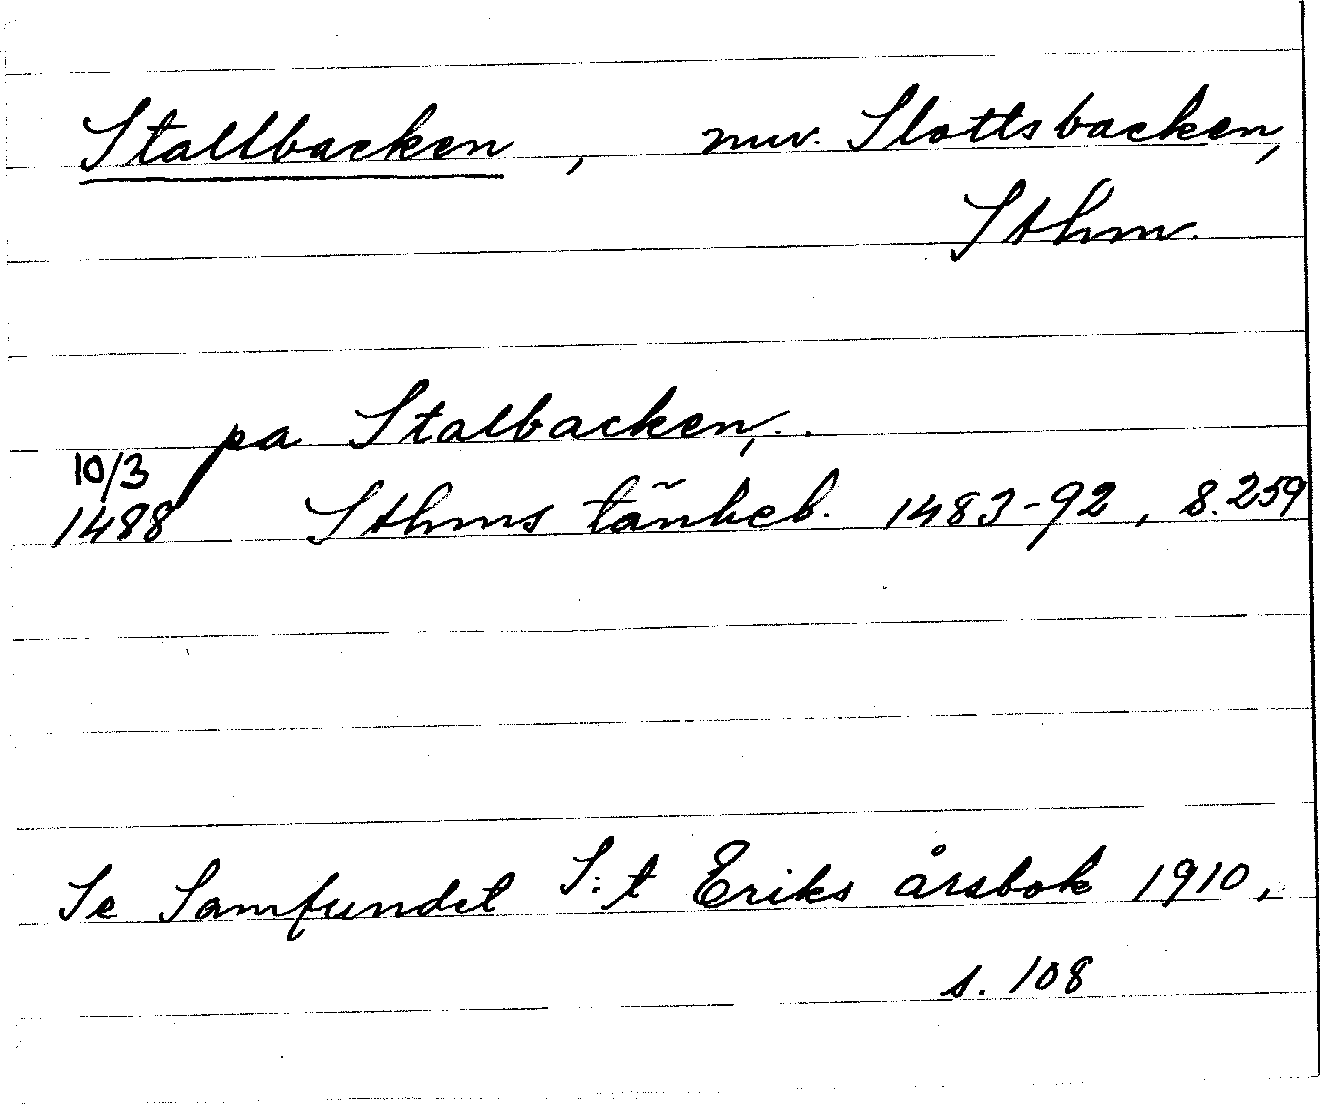 Stallbacken, nuv. Slottsbacken,
Sthm.
pa Stalbacken,..
10/3
1488 Sthms tänkeb. 1483-92, s. 259
Se Samfundet S:t Eriks årsbok 1910,
s. 108